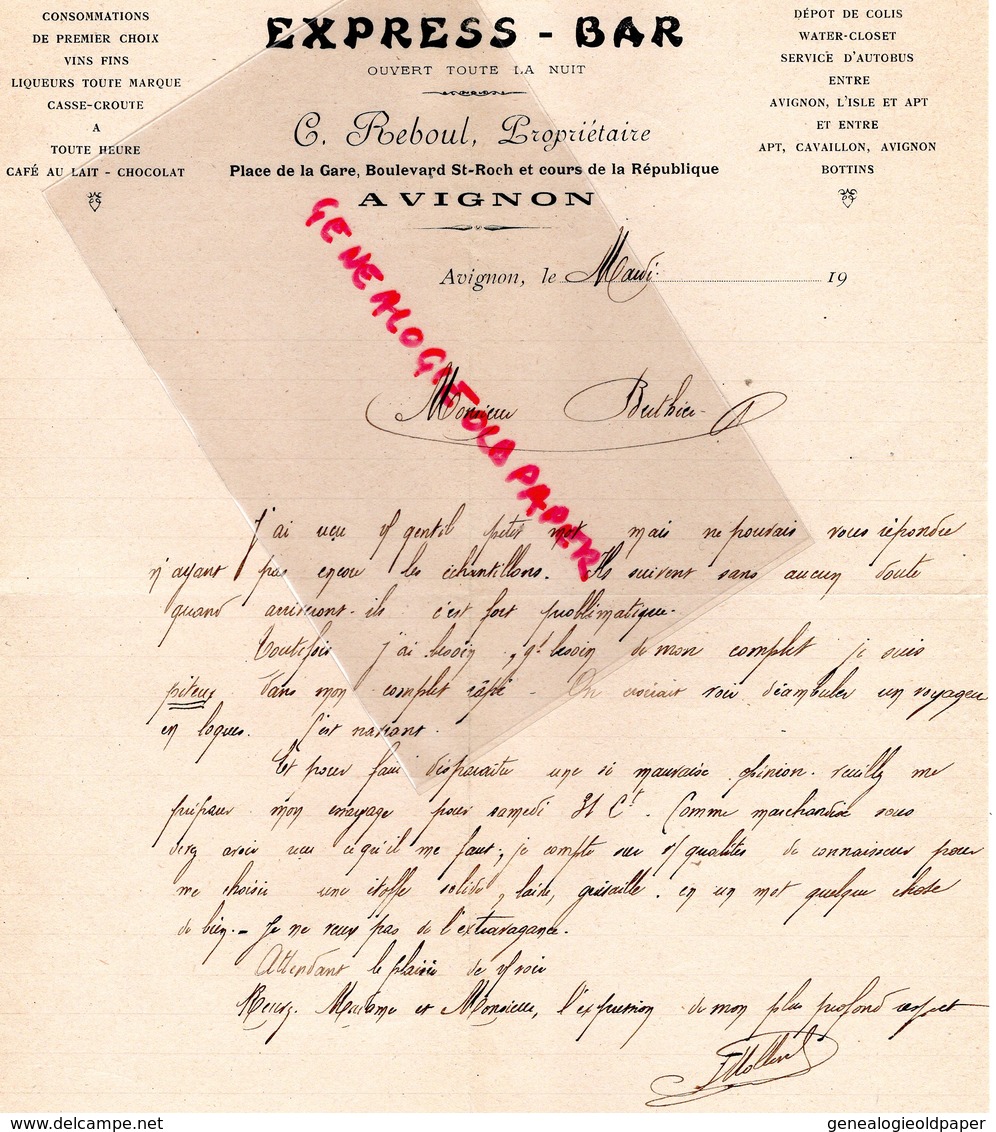 CONSOMMATIONS
DE PREMIER CHOIX
VINS FINS
LIQUEURS TOUTE MARQUE
CASSE-CROUTE
A
TOUTE HEURE
CAFÉ AU LAIT - CHOCOLAT
EXPRESS - BAR
OUVERT TOUTE LA NUIT
C. Reboul, Propriétaire
Place de la Gare, Boulevard St-Roch et cours de la République
AVIGNON
DÉPOT DE COLIS
WATER-CLOSET
SERVICE D'AUTOBUS
ENTRE
AVIGNON, L'ISLE ET APT
ET ENTRE
APT, CAVAILLON, AVIGNON
BOTTINS
GENEALOGIE OLD PAPER
Avignon, le Mardi 19
Monsieur Buthier
J'ai reçu gentil petit mot mais ne pouvais vous répondre
n'ayant pas encore les échantillons. Ils suivent sans aucun doute
quand arriveront-ils c'est fort problématique.
Toutefois j'ai besoin, besoin de mon complet je suis
piteux dans mon complet râpé - On croirait voir déambuler un voyageur
en loques. C'est navrant.
Et pour faire disparaitre une si mauvaise opinion. veuillez me
préparer mon essayage pour samedi 31 Ct. Comme marchandise vous
devez avoir vu ce qu'il me faut; je compte sur qualités de connaisseur pour
me choisir une étoffe solide, laide, grisaille. en un mot quelque chose
de bien. - Je ne veux pas de l'extravagance.
Attendant le plaisir de voir
Recevez. Madame et Monsieur, l'expression de mon plus profond respect
delcampe.net
genealogieoldpaper